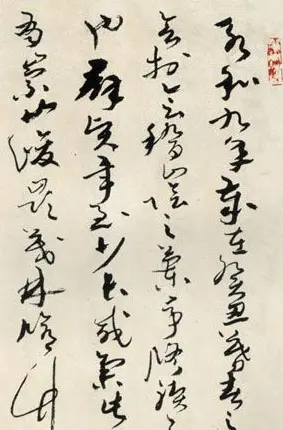 永和九年歲在癸丑暮春之
會於會稽山陰之蘭亭脩禊
也群賢畢至少長咸集此
有崇山峻嶺茂林脩竹